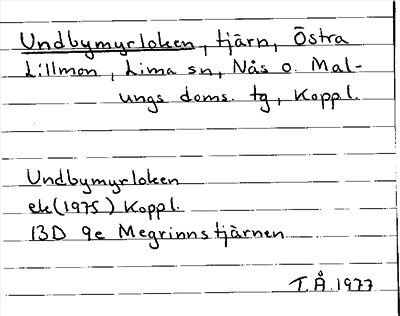 Undbymyrloken, tjärn, Östra
Lillmon, Lima sn, Nås o. Mal-
ungs doms. tg, Koppl.
Undbymyrloken
ek(1975) Koppl.
13D 9e Megrinnstjärnen
T.Å.1977